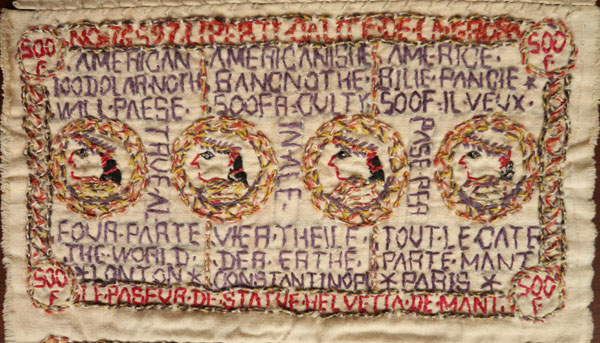 NO·78597·LIBERTI
500 F
500 F
AMERICAN
100DOLAR·NOTHE
WILL·PAESE·
AMERICANISHE
BANCNOTHE·
500FR·CULTY·
AMERICE·
BILIE·PANCIE*
500F·IL·VEUX·
TRUE·AL
IN·ALE·
PASE·REA
FOUR·PARTE
THE·WORLD·
*LONTON*
VIER·THEILE·
DER·ERTHE·
CONSTANTINOPL
TOUT·LE·CATE
PARTE·MANT·
*PARIS*
500 F
500 F
LE·PASEUR·DE·STATUE·HELVETIA·DE·MANT·